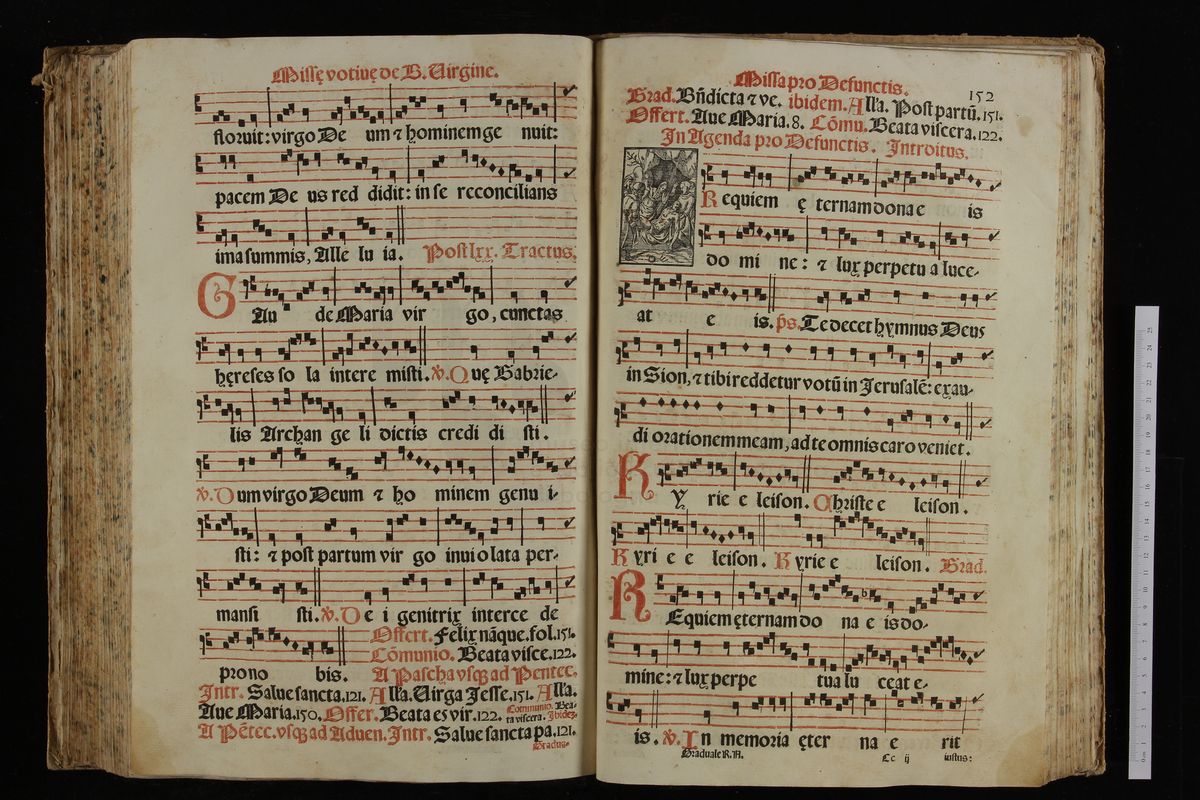 Missę votiuę de B. Uirgine.
floruit: virgo De um ⁊ hominem ge nuit:
pacem De us red didit: in se reconcilians
ima summis, Alle lu ia. Post lxx. Tractus.
GAu de Maria vir go, cunctas
hęreses so la intere misti. ℣. Quę Gabrie-
lis Archan ge li dictis credi di sti.
℣. Dum virgo Deum ⁊ ho minem genu i-
sti: ⁊ post partum vir go inuiolata per-
mansi sti. ℣. De i genitrix interce de
pro no bis.
Offert. Felix nāque. fol. 151.
Cōmunio. Beata visce. 122.
A Pascha vsq; ad Pentec.
Intr. Salue sancta. 121. All'a. Uirga Jesse. 151. All'a.
Aue Maria. 150. Offer. Beata es vir. 122. Communio. Bea-
ta viscera. Ibidez.
A Pētec. vsq; ad Aduen. Intr. Salue sancta pa. 121.
Gradus-
Missa pro Defunctis. 152
Grad. Bñdicta ⁊ ve. ibidem. All'a. Post partū. 151.
Offert. Aue Maria. 8. Cōmu. Beata viscera. 122.
In Agenda pro Defunctis. Introitus.
Requiem ę ternam dona e is
do mi ne: ⁊ lux perpetu a luce-
at e is. ps. Te decet hymnus Deus
in Sion, ⁊ tibi reddetur votū in Jerusalē: exau-
di orationem meam, ad te omnis caro veniet.
KY rie e leison. Christe e leison.
Kyri e e leison. Kyrie e leison. Grad.
REquiem ęternam do na e is do-
mine: ⁊ lux perpe tua lu ceat e-
is. ℣. In memoria ęter na e rit
Graduale R. A. Cc ij iustus: